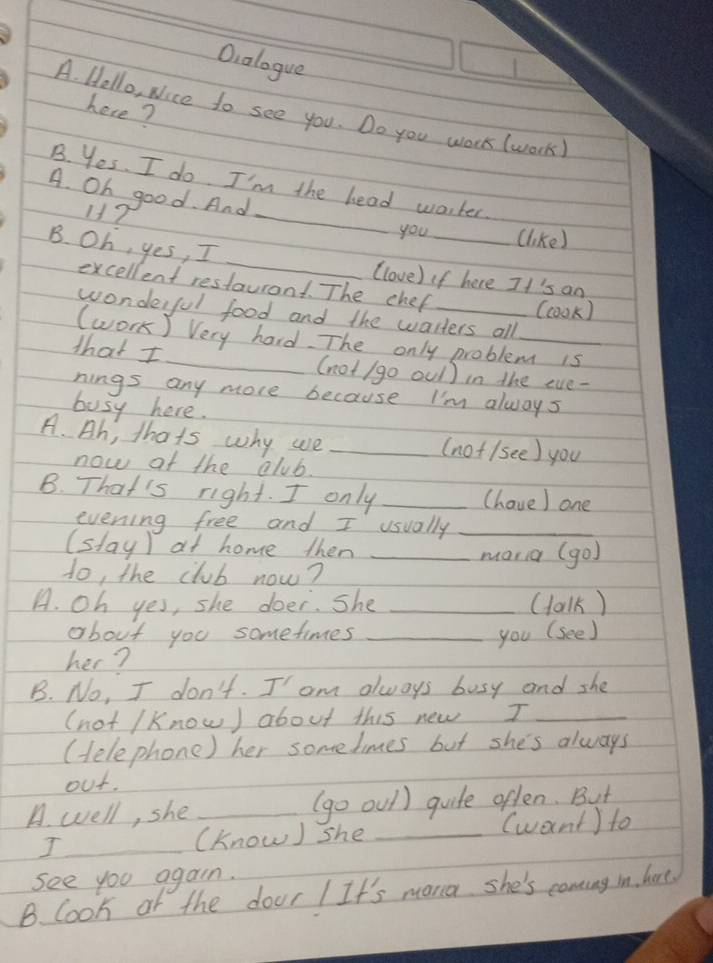 Dialogue
A. Hello, Nice to see you. Do you work (work)
here?
B. Yes. I do. I'm the head waiter.
A. Oh good. And ______ you ____ (like)
it?
B. Oh, yes, I ______ (love) if here It's an
excellent restaurant. The chef ____ (cook)
wonderful food and the waiters all ____
(work) Very hard. The only problem is
that I ______ (not/go out) in the eve-
nings any more because I'm always
busy here.
A. Ah, thats why we ____ (not/see) you
now at the club.
B. That's right. I only ____ (have) one
evening free and I usually ____
(stay) at home then ____ maria (go)
to, the club now?
A. Oh yes, she doer. She ____ (talk)
about you sometimes ____ you (see)
her?
B. No, I don't. I'am always busy and she
(not/Know) about this new I ____
(telephone) her sometimes but she's always
out.
A. well, she ____ (go out) quite often. But
I ____ (Know) She ____ (want) to
see you again.
B. look at the dour! It's maria she's coming in. here.